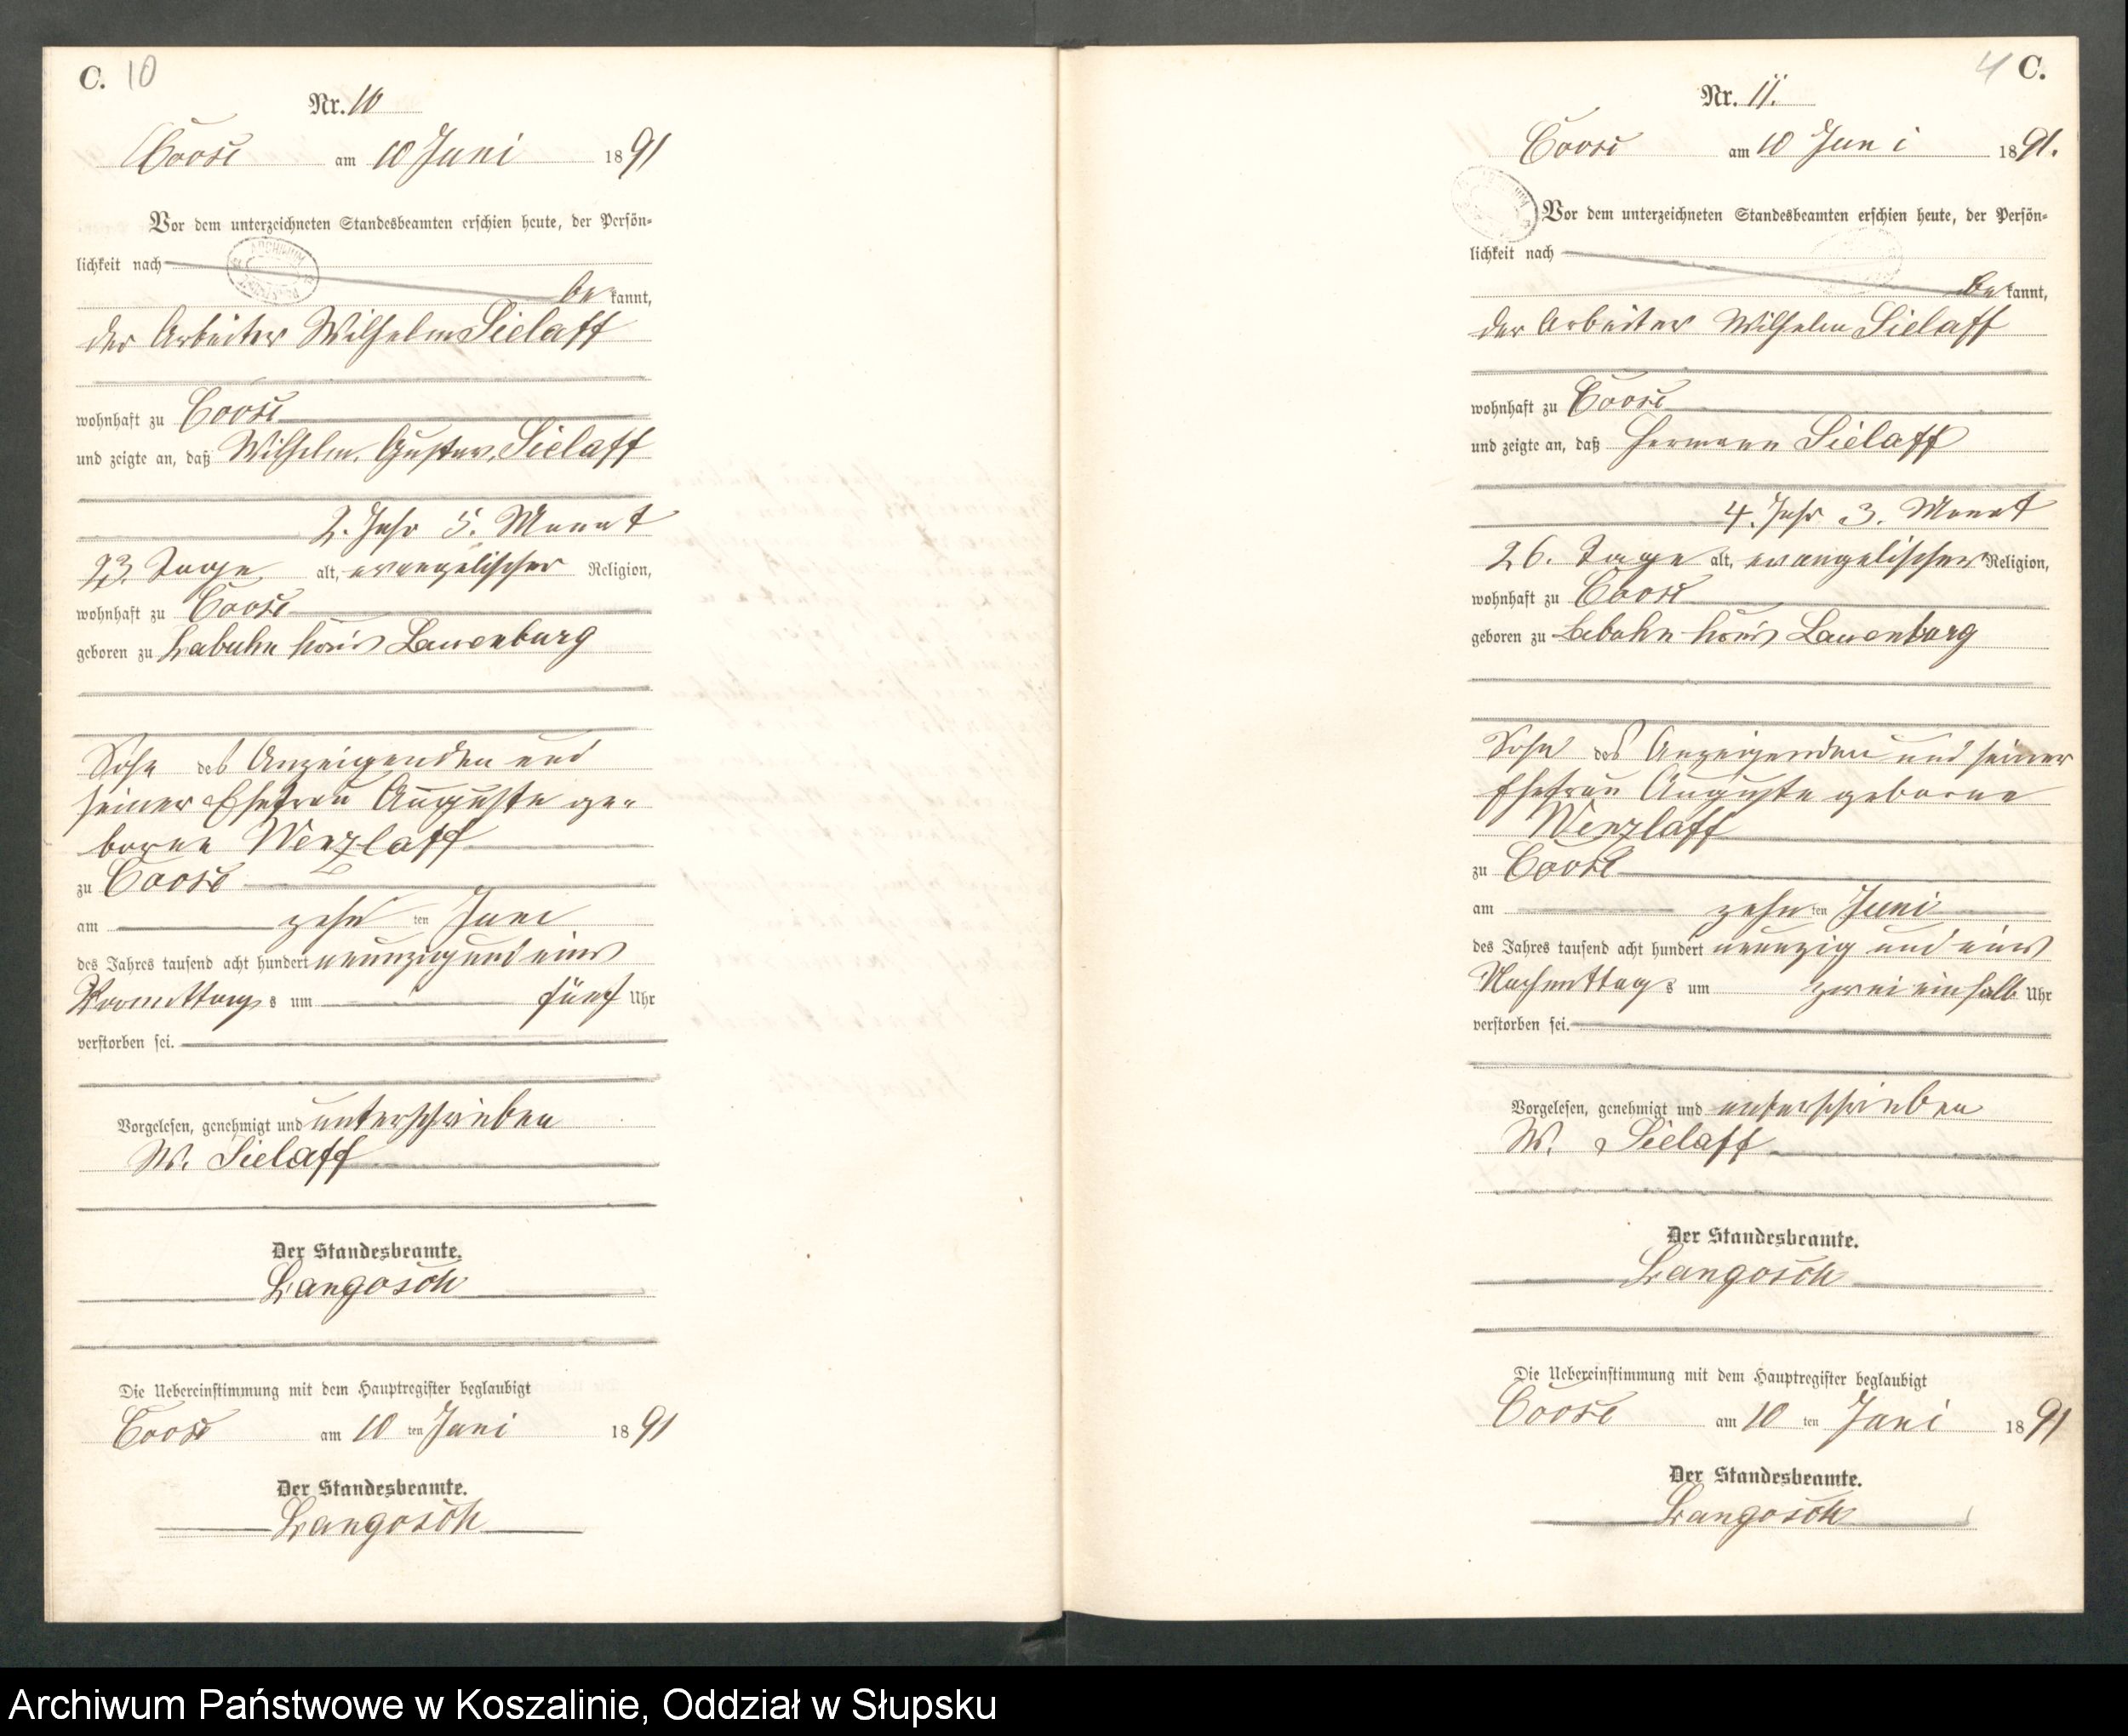 C. 10
Nr. 10
Coose am 10 Juni 1891
Vor dem unterzeichneten Standesbeamten erschien heute, der Persön-
lichkeit nach
be kannt,
der Arbeiter Wilhelm Sielaff
wohnhaft zu Coose
und zeigte an, daß Wilhelm, Gustav, Sielaff
2. Jahr 5. Monat
23. Tage alt, evangelischer Religion,
wohnhaft zu Coose
geboren zu Labuhn Kreis Lauenburg
Sohn des Anzeigenden und
seiner Ehefrau Auguste ge-
borne Wenzlaff
zu Coose
am zehn ten Juni
des Jahres tausend acht hundert neunzig und eins
Vormittag s um fünf Uhr
verstorben sei.
Vorgelesen, genehmigt und unterschrieben
W. Sielaff
Der Standesbeamte.
Langosch
Die Uebereinstimmung mit dem Hauptregister beglaubigt
Coose am 10 ten Juni 1891
Der Standesbeamte.
Langosch
4 C.
Nr. 11.
Coose am 10 Juni 1891.
Vor dem unterzeichneten Standesbeamten erschien heute, der Persön-
lichkeit nach
be kannt,
der Arbeiter Wilhelm Sielaff
wohnhaft zu Coose
und zeigte an, daß Hermann Sielaff
4. Jahr 3. Monat
26. Tage alt, evangelischer Religion,
wohnhaft zu Coose
geboren zu Labuhn Kreis Lauenburg
Sohn des Anzeigenden und seiner
Ehefrau Auguste geborne
Wenzlaff
zu Coose
am zehn ten Juni
des Jahres tausend acht hundert neunzig und eins
Nachmittag s um zwei ein halb Uhr
verstorben sei.
Vorgelesen, genehmigt und unterschrieben
W. Sielaff
Der Standesbeamte.
Langosch
Die Uebereinstimmung mit dem Hauptregister beglaubigt
Coose am 10 ten Juni 1891
Der Standesbeamte.
Langosch
Archiwum Państwowe w Koszalinie, Oddział w Słupsku